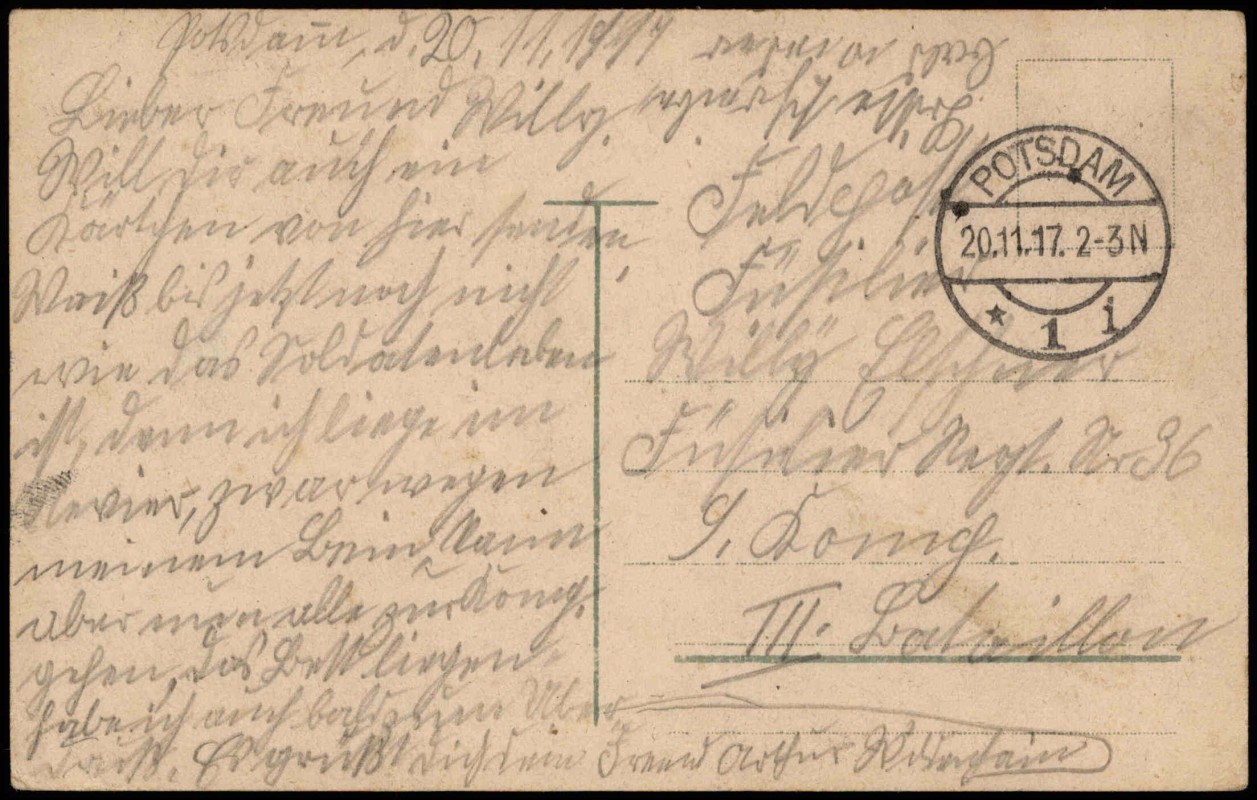 Potsdam, d. 20. 11. 1917
Lieber Freund Willy.
Will dir auch ein
Kärtchen von hier senden
Weiß bis jetzt noch nicht
wie das Soldatenleben
ist, denn ich liege im
Revier, zwar wegen
meinem Bein. Kann
aber nun alle zur Komp.
gehen, das Bett liegen
habe ich auch bald zum Über
druß. Es grüßt dich dein Freund Arthur
Feldpost
Füsilier
Willy Elschner
Füsilier Regt. Nr 36
9. Komp.
III. Bataillon
POTSDAM
20.11.17. 2-3N
* 1 i